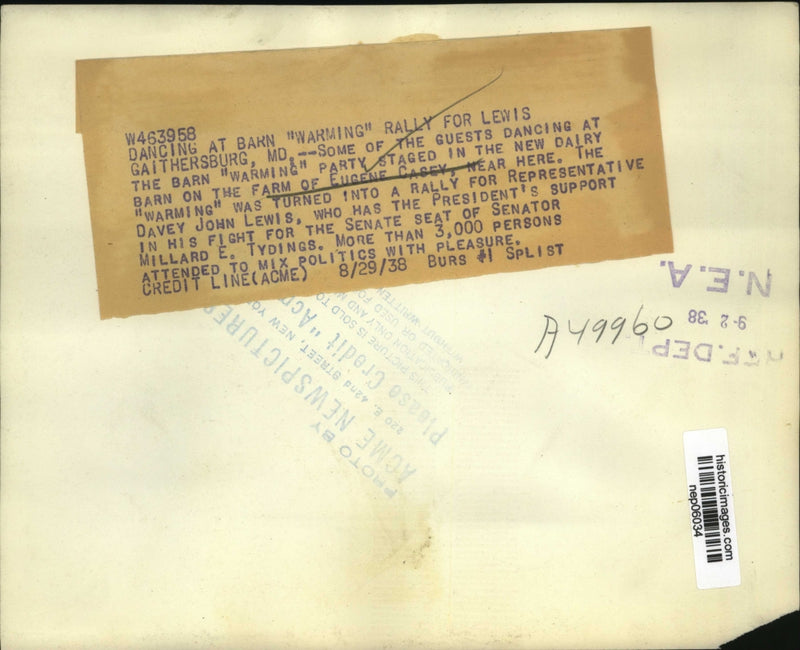 W463958
DANCING AT BARN "WARMING" RALLY FOR LEWIS
GAITHERSBURG, MD.--SOME OF THE GUESTS DANCING AT
THE BARN "WARMING" PARTY STAGED IN THE NEW DAIRY
BARN ON THE FARM OF EUGENE CASEY, NEAR HERE. THE
"WARMING" WAS TURNED INTO A RALLY FOR REPRESENTATIVE
DAVEY JOHN LEWIS, WHO HAS THE PRESIDENT'S SUPPORT
IN HIS FIGHT FOR THE SENATE SEAT OF SENATOR
MILLARD E. TYDINGS. MORE THAN 3,000 PERSONS
ATTENDED TO MIX POLITICS WITH PLEASURE.
CREDIT LINE(ACME) 8/29/38 BURS #1 SPLIST
PHOTO BY
ACME NEWSPICTURES
220 E. 42nd STREET, NEW YO
Please Credit "Ac
THIS PICTURE IS SOLD TO
ON ONLY AND
OR USED FO
WITHOUT WRITTEN
A49960
N.E.A.
9-2 '38
F.DEP
historicimages.com
nep06034